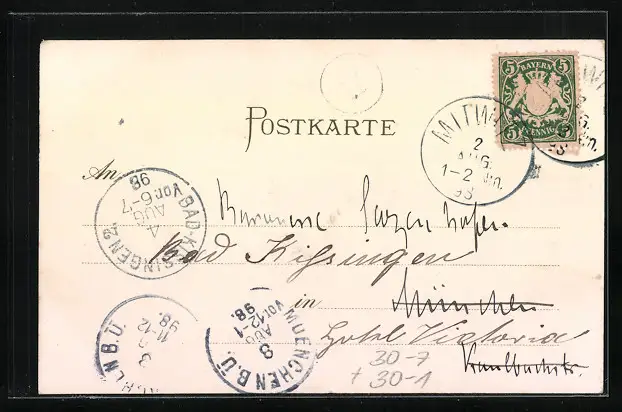 BAYERN
5 5
5 PFENNIG 5
MITTW
2
AUG.
1-2 Nm.
98
POSTKARTE
An
BAD-KISSINGEN 2.
4
AUG
Vor. 6-7
98
Bad Kissingen
in
München
Hotel Victoria
Kaulbachstr.
MUENCHEN B.Ü.
3
AUG
Vor. 12-1
98.
CHEN B.Ü.
3
11-12
98.
30-7
+ 30-1